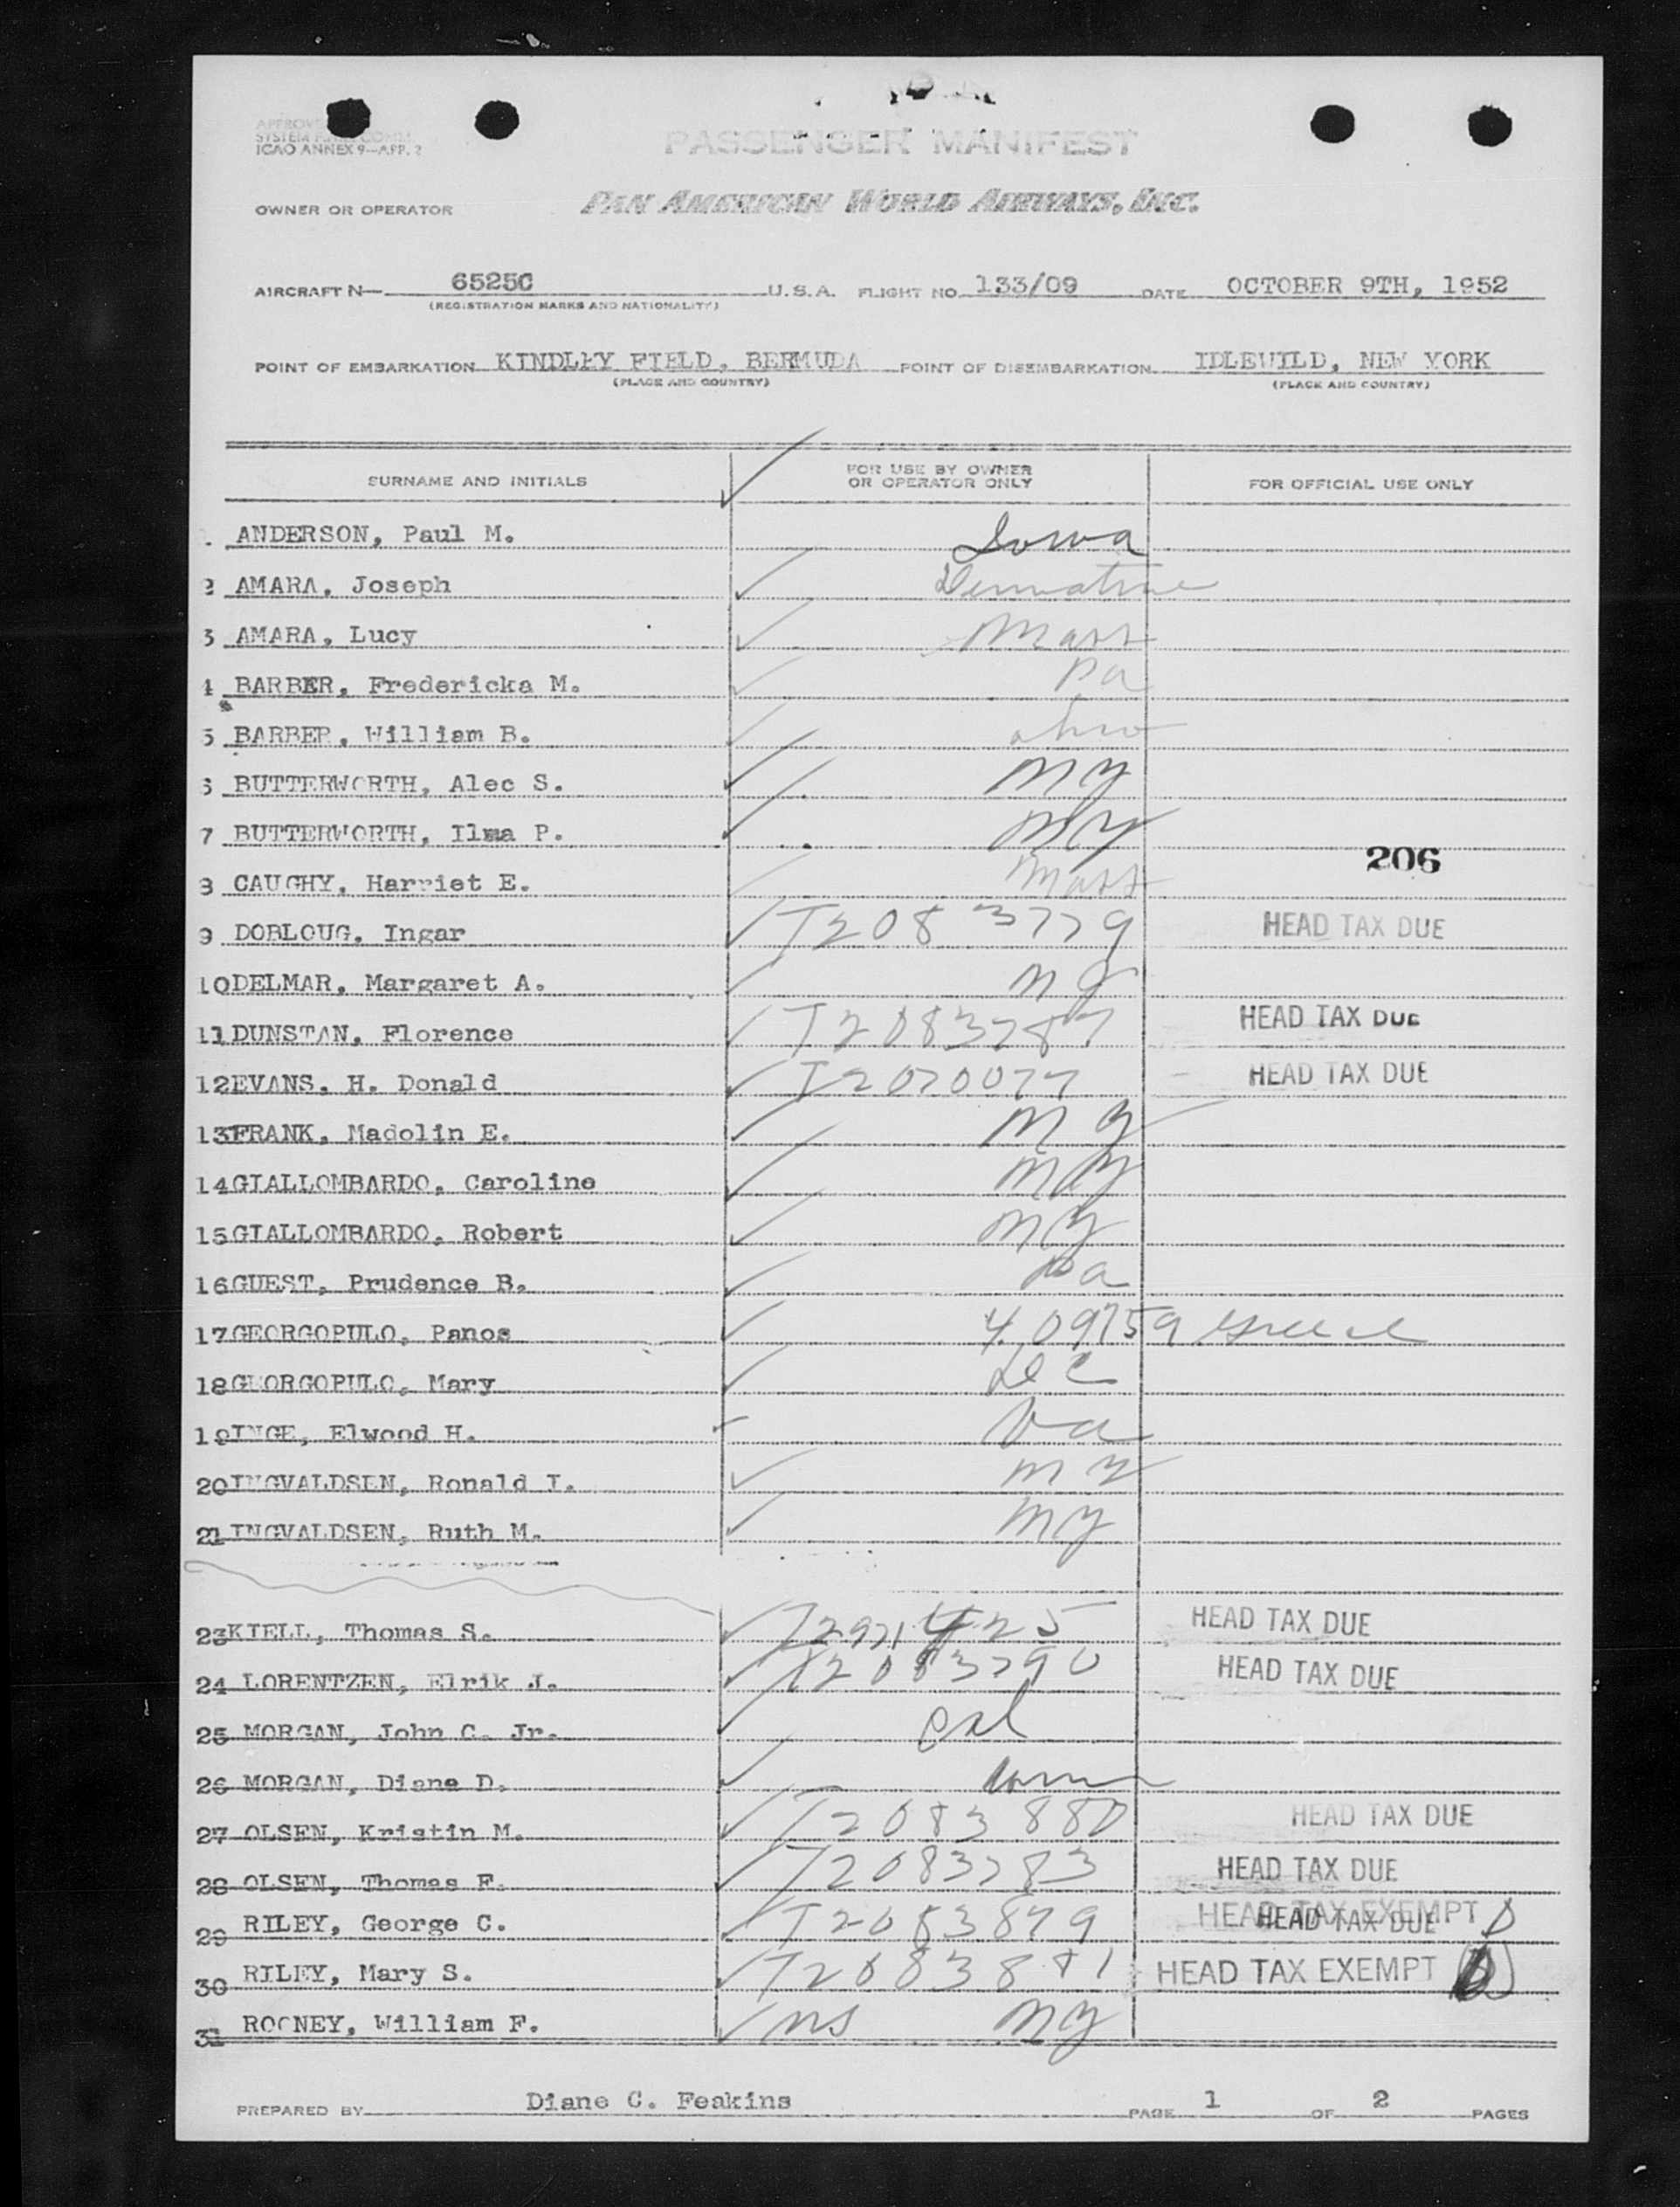 SYSTEM
ICAO ANNEX 9—APP. 2
PASSENGER MANIFEST
OWNER OR OPERATOR PAN AMERICAN WORLD AIRWAYS, INC.
AIRCRAFT N— 6525C U.S.A. FLIGHT NO. 133/09 DATE OCTOBER 9TH, 1952
(REGISTRATION MARKS AND NATIONALITY)
POINT OF EMBARKATION KINDLEY FIELD, BERMUDA POINT OF DISEMBARKATION IDLEWILD, NEW YORK
(PLACE AND COUNTRY) (PLACE AND COUNTRY)
SURNAME AND INITIALS FOR USE BY OWNER OR OPERATOR ONLY FOR OFFICIAL USE ONLY
ANDERSON, Paul M. Iowa
2 AMARA, Joseph
3 AMARA, Lucy Mass
4 BARBER, Fredericka M. Pa
5 BARBER, William B. Ohio
6 BUTTERWORTH, Alec S. NY
7 BUTTERWORTH, Ilma P. NY
206
8 CAUGHY, Harriet E. Mass
9 DOBLOUG, Ingar T2083779 HEAD TAX DUE
10 DELMAR, Margaret A. NJ
11 DUNSTAN, Florence T2083787 HEAD TAX DUE
12 EVANS, H. Donald T2070077 HEAD TAX DUE
13 FRANK, Madolin E. NY
14 GIALLOMBARDO, Caroline NY
15 GIALLOMBARDO, Robert NY
16 GUEST, Prudence B. Pa
17 GEORGOPULO, Panos 409759 Greece
18 GEORGOPULO, Mary DC
19 INGE, Elwood H. Va
20 INGVALDSEN, Ronald I. NY
21 INGVALDSEN, Ruth M. NY
23 KIELL, Thomas S. HEAD TAX DUE
24 LORENTZEN, Elrik J. T2083790 HEAD TAX DUE
25 MORGAN, John C. Jr. Cal
26 MORGAN, Diane D. Conn
27 OLSEN, Kristin M. T2083880 HEAD TAX DUE
28 OLSEN, Thomas F. T2083783 HEAD TAX DUE
29 RILEY, George C. T2083879 HEAD TAX EXEMPT HEAD TAX DUE
30 RILEY, Mary S. T2083881 HEAD TAX EXEMPT
31 ROONEY, William F. ns NY
PREPARED BY Diane C. Feakins PAGE 1 OF 2 PAGES